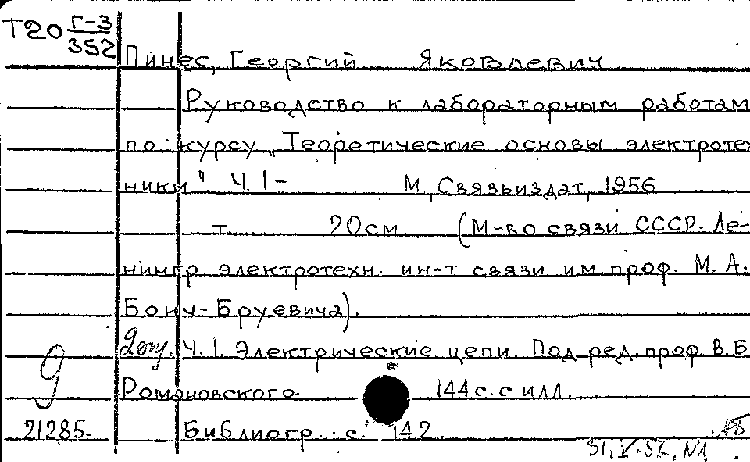 Т20 Г-3/352
Пинес, Георгий Яковлевич
Руководство к лабораторным работам
по курсу „Теоретические основы электротех
ники" Ч. 1- М, Связьиздат, 1956
т. 20 см (М-во связи СССР. Ле-
нингр электротехн. ин-т связи им проф. М. А.
Бонч-Бруевича).
Ч. 1. Электрические цепи. Под ред. проф В. Б
Романовского 144 с. с илл.
9
21285. Библиогр.: с. 142